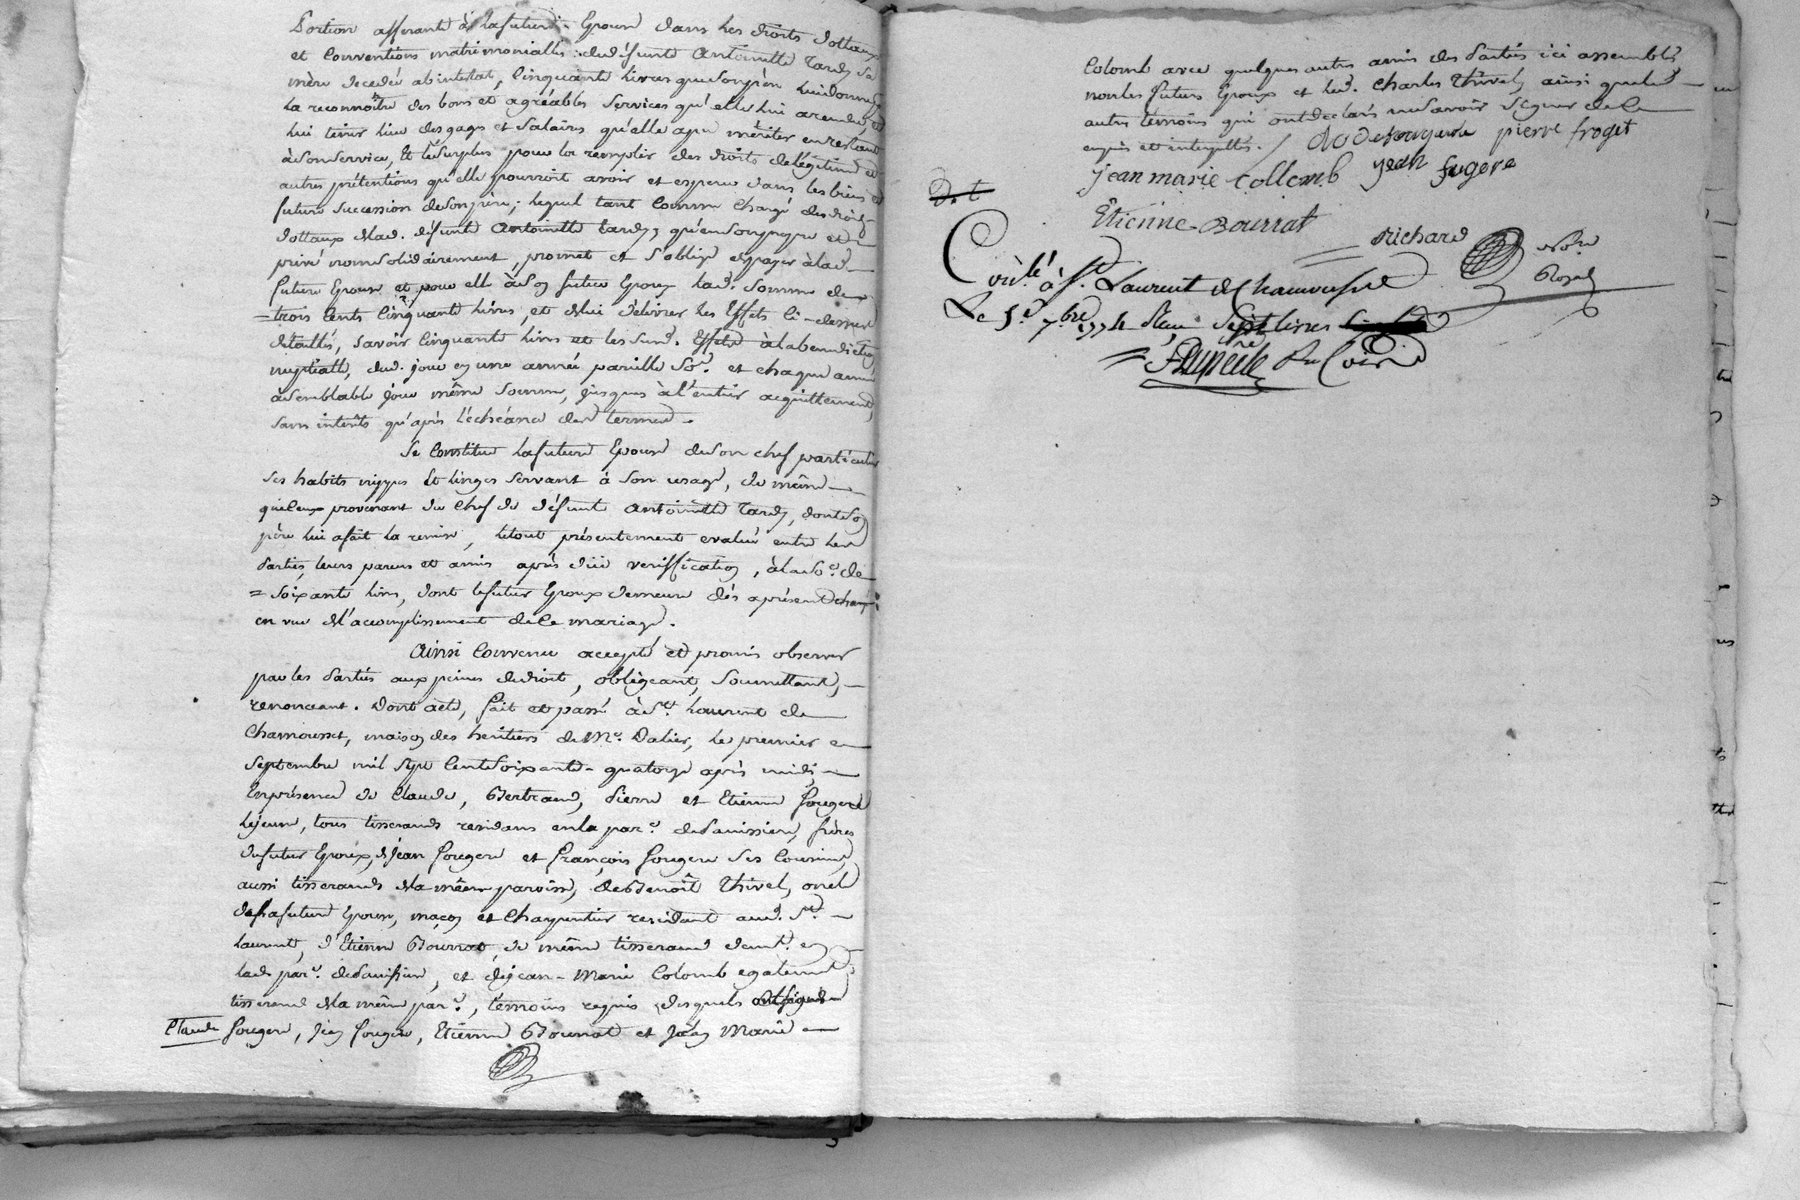 Portion afferante à la future Epouse dans les droits dottaux
et Conventions matrimonialles dud. défunte Antoinette Tardy sa
mère decedée abintestat, Cinquante livres que son père lui donne
la reconnoitre des bons et agréables services qu'elle lui a rendu, et
lui tenir lieu des gages et Salaires qu'elle a pu mériter en restant
à son service, Et le surplus pour la remplir des droits de légitime et
autres prétentions qu'elle pourroit avoir et esperer dans les biens et
future succession de son père; lequel tant Comme Chargé des droits
dottaux de lad. défunte Antoinette Tardy, qu'en son propre et
privé nom solidairement, promet et s'oblige de payer à lad.
future Epouse et pour elle à son futur Epoux lad. somme de
trois Cents Cinquante livres, et de lui délivrer les Effets ci-dessus
détaillés, savoir Cinquante livres et les susd. Effets à la benediction
nuptialle, dud. jour en une année pareille so.e et chaque année
à semblable jour même somme, jusques à l'entier acquittement,
sans intérêts qu'après l'échéance des termes.
Se Constitue la future Epouse de son chef particulier
ses habits nippes et linges servant à son usage, de même
que ceux provenant du chef de défunte Antoinette Tardy, dont son
père lui a fait la remise, le tout présentement evalué entre les
Parties, leurs parens et amis après due veriffication, à la so.e de
= soixante livres, dont le futur Epoux demeure dés aprésent chargé
en vue de l'accomplissement de Ce mariage.
Ainsi Convenu accepté et promis observer
par les Parties aux peines de droit, obligeant, soumettant,
renonceant. Dont acte, fait et passé à St. Laurent de
Chamousset, maison des heritiers de Me. Dalier, le premier
septembre mil sept Cent soixante-quatorze après midi,
En présence de Claude, Bertrand, Pierre et Etienne Fougere
lejeune, tous tisserands residans en la par.e de Saussieu, frères
du futur Epoux, de Jean Fougere et François Fougere ses Cousins,
aussi tisserands de la même paroisse, de Benoît Thivel, oncle
de la future Epouse, maçon et Charpentier residant aud. St.
Laurent, d'Etienne Bourrat, de même tisserand demt. en
lad. par.e, et de jean-Marie Colomb egalement
tisserand de la même par.e, témoins requis desquels ont signé
Claude Fougere, Jean Fougere, Etienne Bourrat et Jean Marie
Colomb avec quelques autres amis des Parties ici assemblés
non les futurs Epoux et led. Charles Thivel, ainsi que les
autres temoins qui ont declaré ne savoir signer de ce
enquis et interpellés. / Clode fougere pierre froget
jean marie Collomb jean fugere
Etienne Bourrat
Richard Nore
Royal
Conle. à St. Laurent de Chamousset
Le 5e. 7bre 1774 Reçu Sept livres